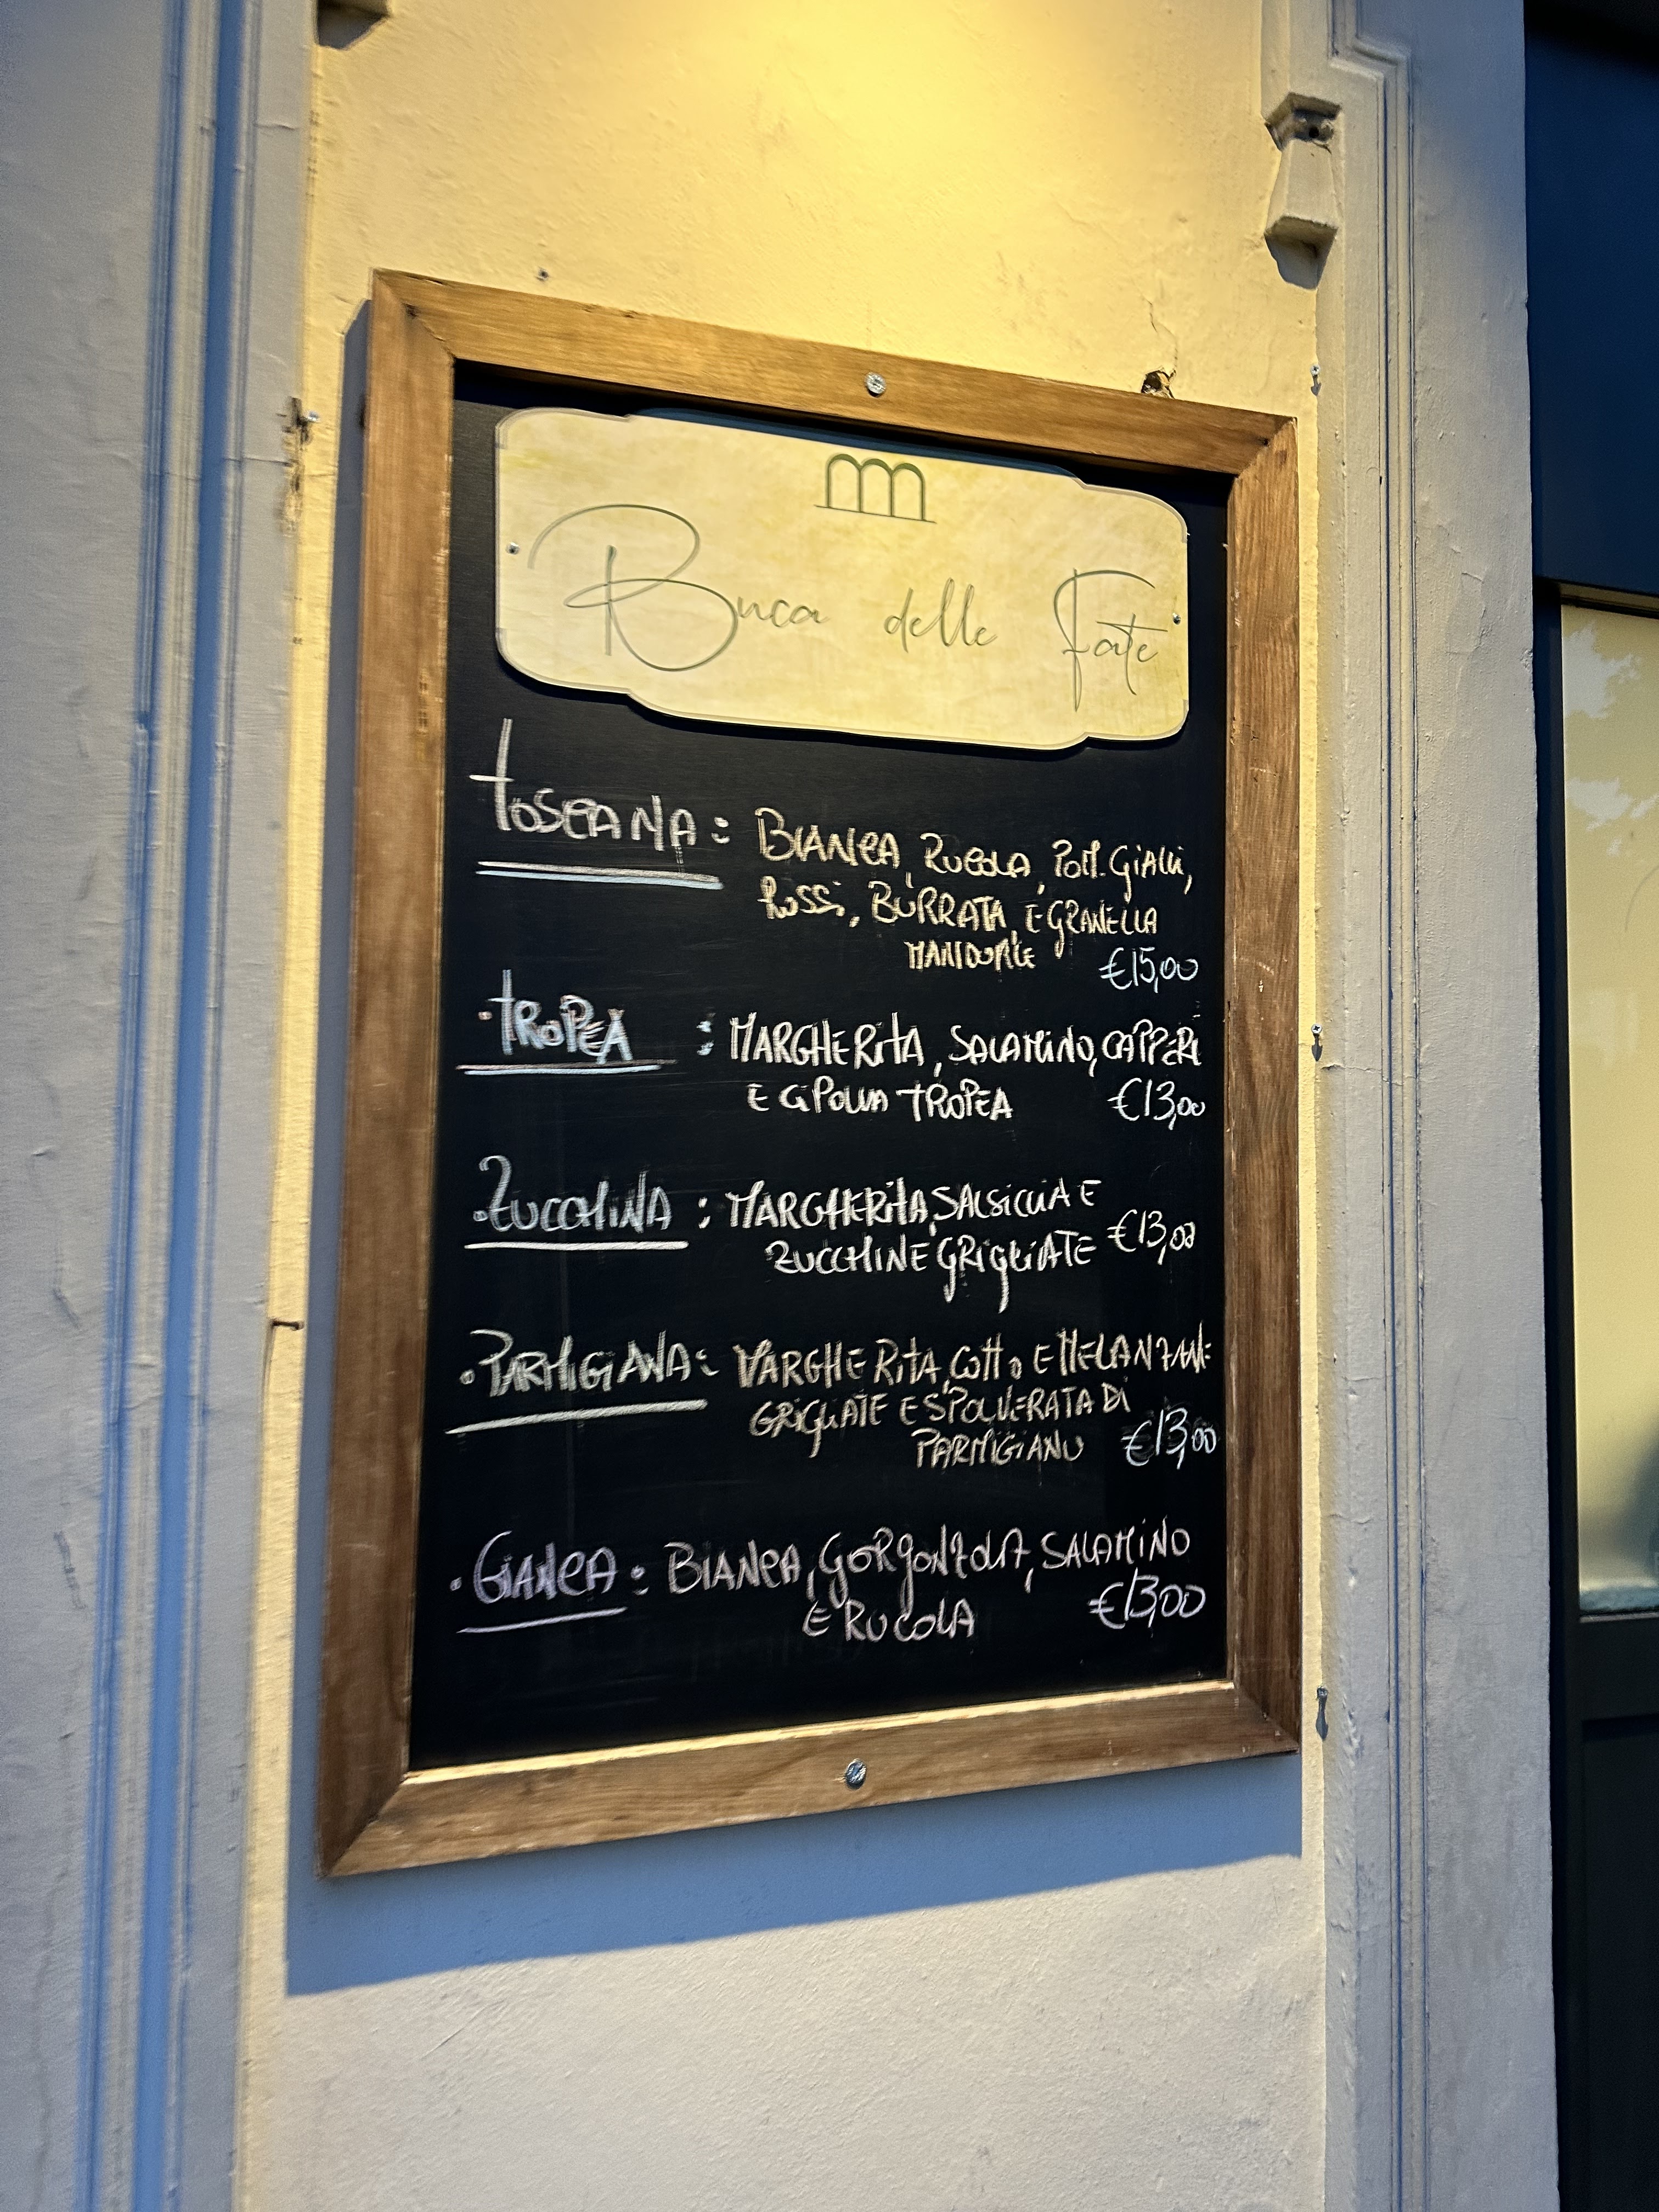 Buca delle Fate
TOSCANA: BIANCA, RUCOLA, POM. GIALLI,
ROSSI, BURRATA, E GRANELLA
MANDORLE €15,00
·TROPEA : MARGHERITA, SALAMINO, CAPPERI
E CIPOLLA TROPEA €13,00
·ZUCCHINA : MARGHERITA, SALSICCIA E
ZUCCHINE GRIGLIATE €13,00
·PARMIGIANA: MARGHERITA, COTTO E MELANZANE
GRIGLIATE E SPOLVERATA DI
PARMIGIANO €13,00
·GIANCA: BIANCA, GORGONZOLA, SALAMINO
E RUCOLA €13,00